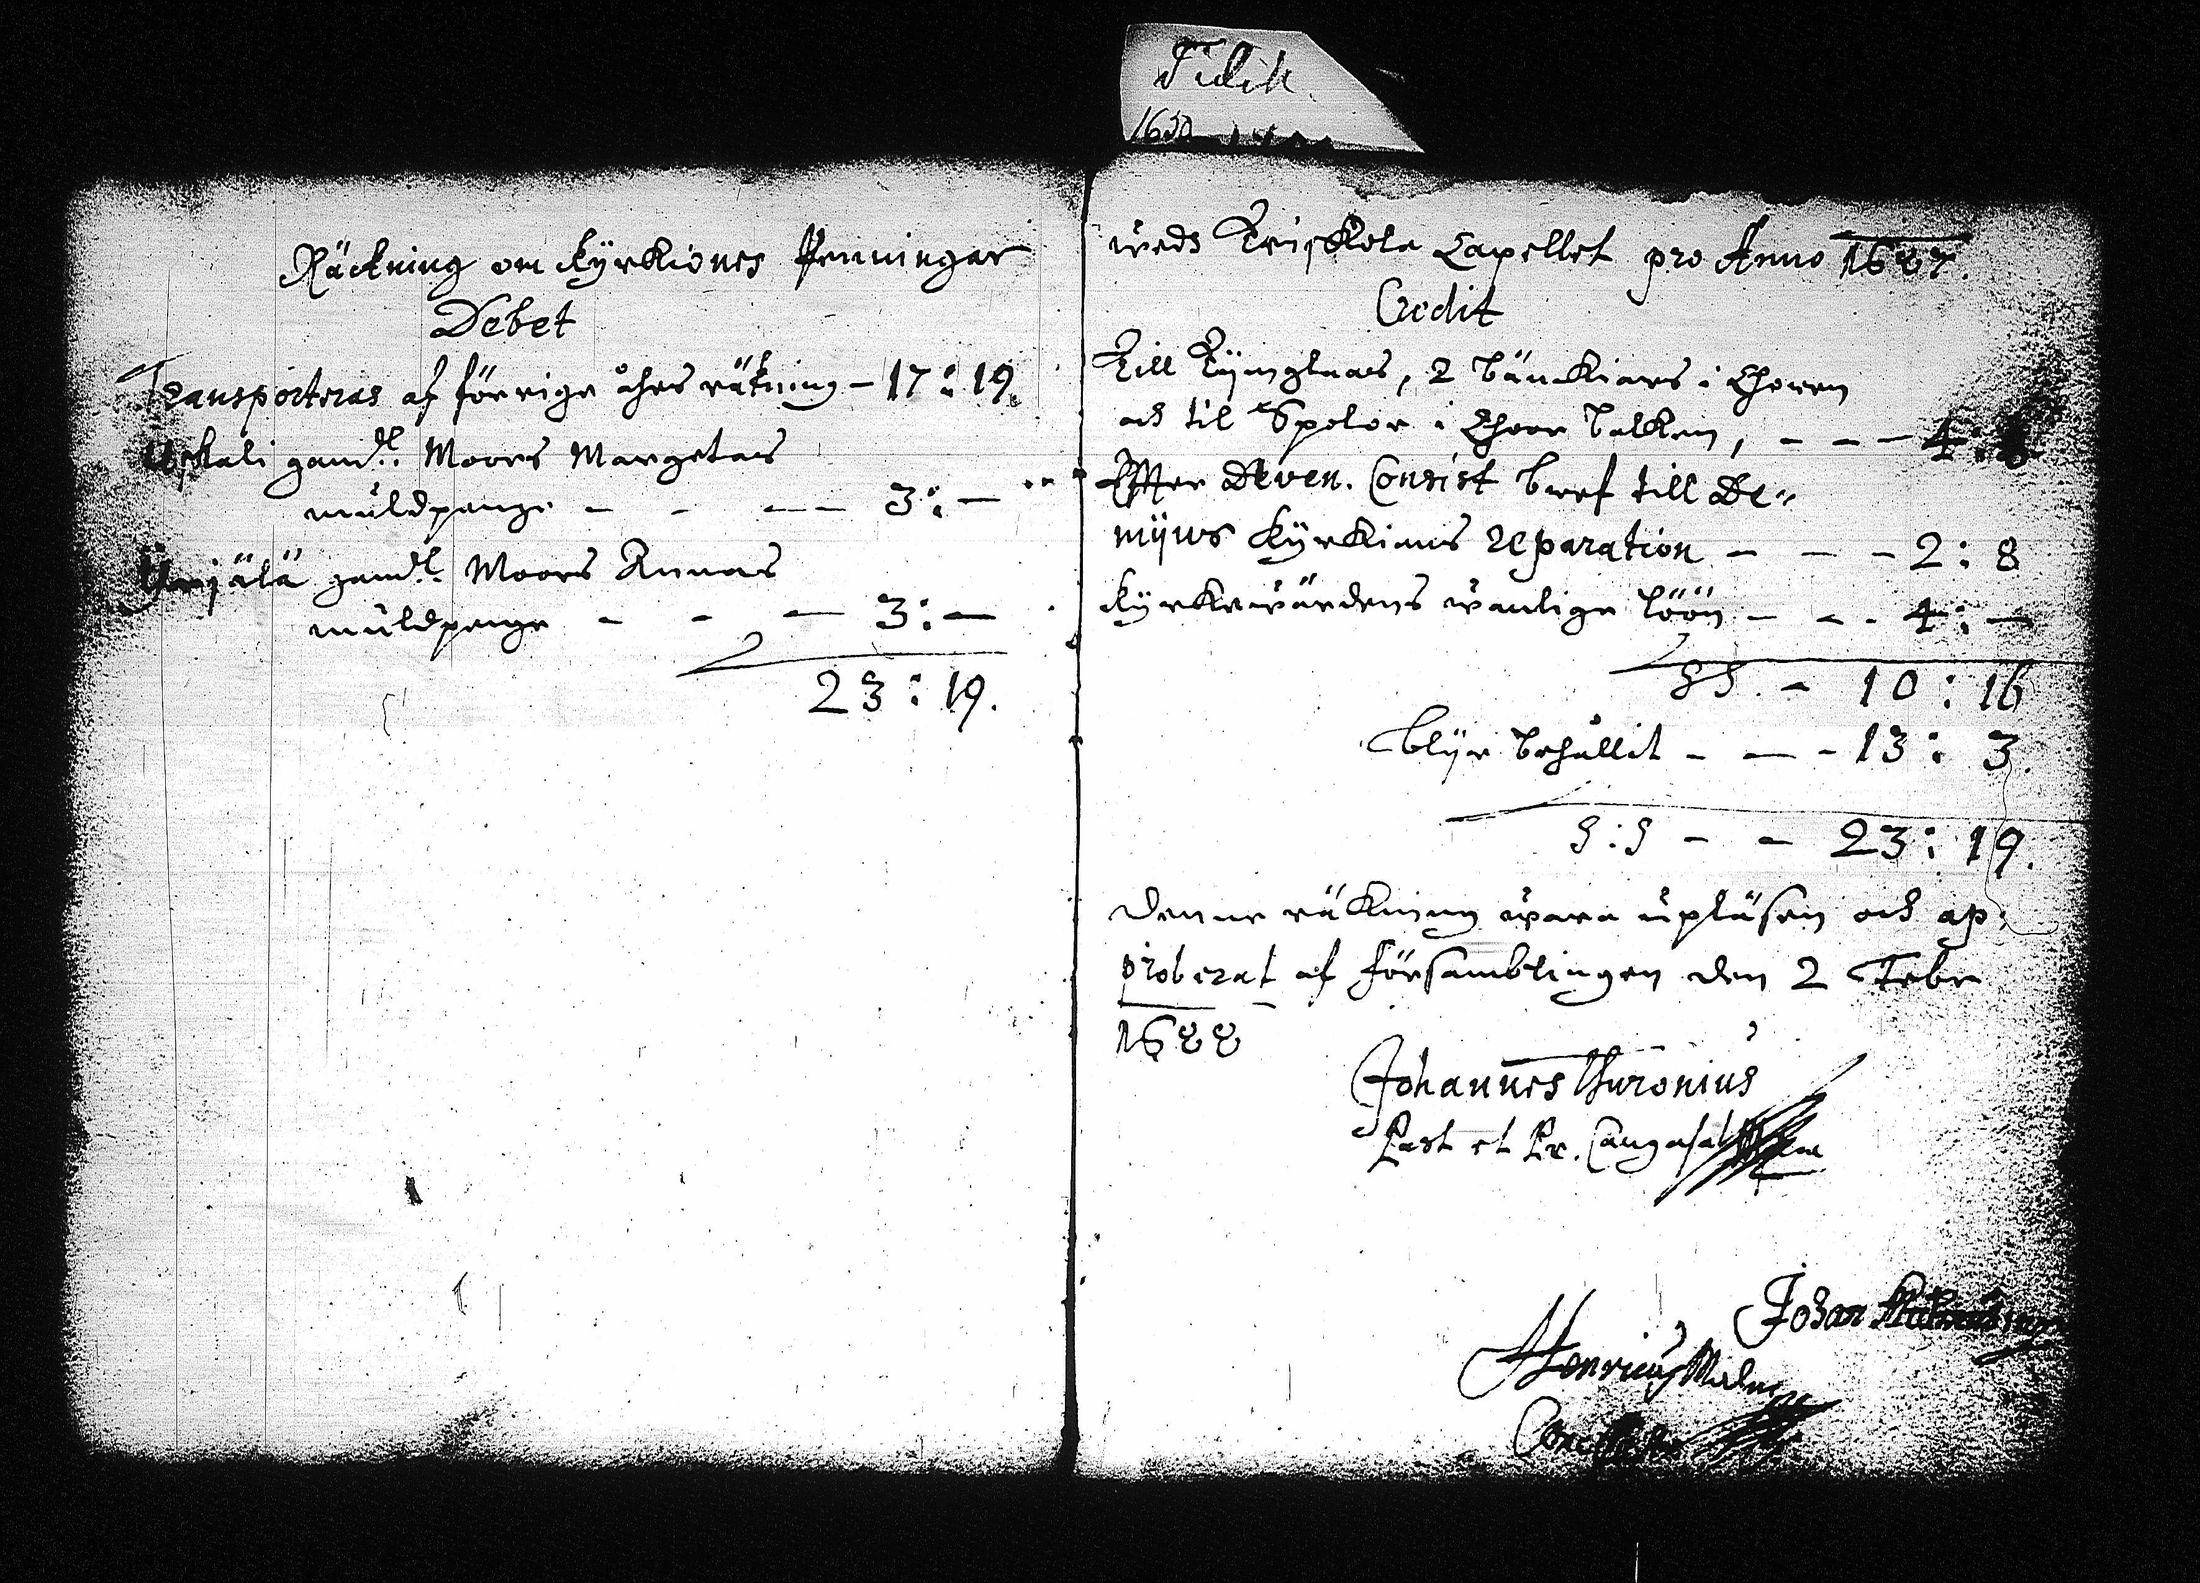 Tidik.
1680
Räckning om kyrkiones Penningar
Debet
Transporteras af förrige åhrs räkning - 17: 19.
gamdl: Moors Margetas
muldpenge - - - - 3: -
Yrjälä gamdl: Moors Annas
muldpenge - - - 3: -
23: 19.
weds Capellet pro Anno 1687.
Credit
Till 2 bänckiars i Choren
och til Spolor i Choor balken, - - - 4: 8
Effter Wen. Consist bref till De-
myiors kyrkians reparation - - - 2: 8
kyrkiowärdens wanlige löön - - - 4: -
SS. - 10: 16
blijr behållit - - - 13: 3.
S:S - - 23: 19.
Denne räkning wara upläsen och ap:
proberat af församblingen den 2 Febr
1688
Johannes Thuronius
Past et Pr. Cangasal
Johan
Henricus